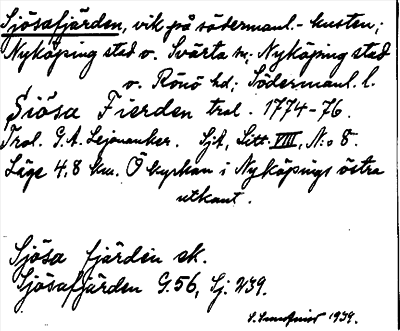 Sjösafjärden, vik på södermanl.-kusten;
Nyköping stad o. Svärta sn; Nyköping stad
o. Rönö hd; Södermanl. l.
Siösa Fierden tral. 1774-76.
Tral. G.A. Lejonanker. SjA, Litt. VIII, N:o 8.
Läge 4,8 km. Ö kyrkan i Nyköpings östra
utkant.
Sjösa fjärden ek.
Sjösafjärden G.56, Sj. 239.
1939.